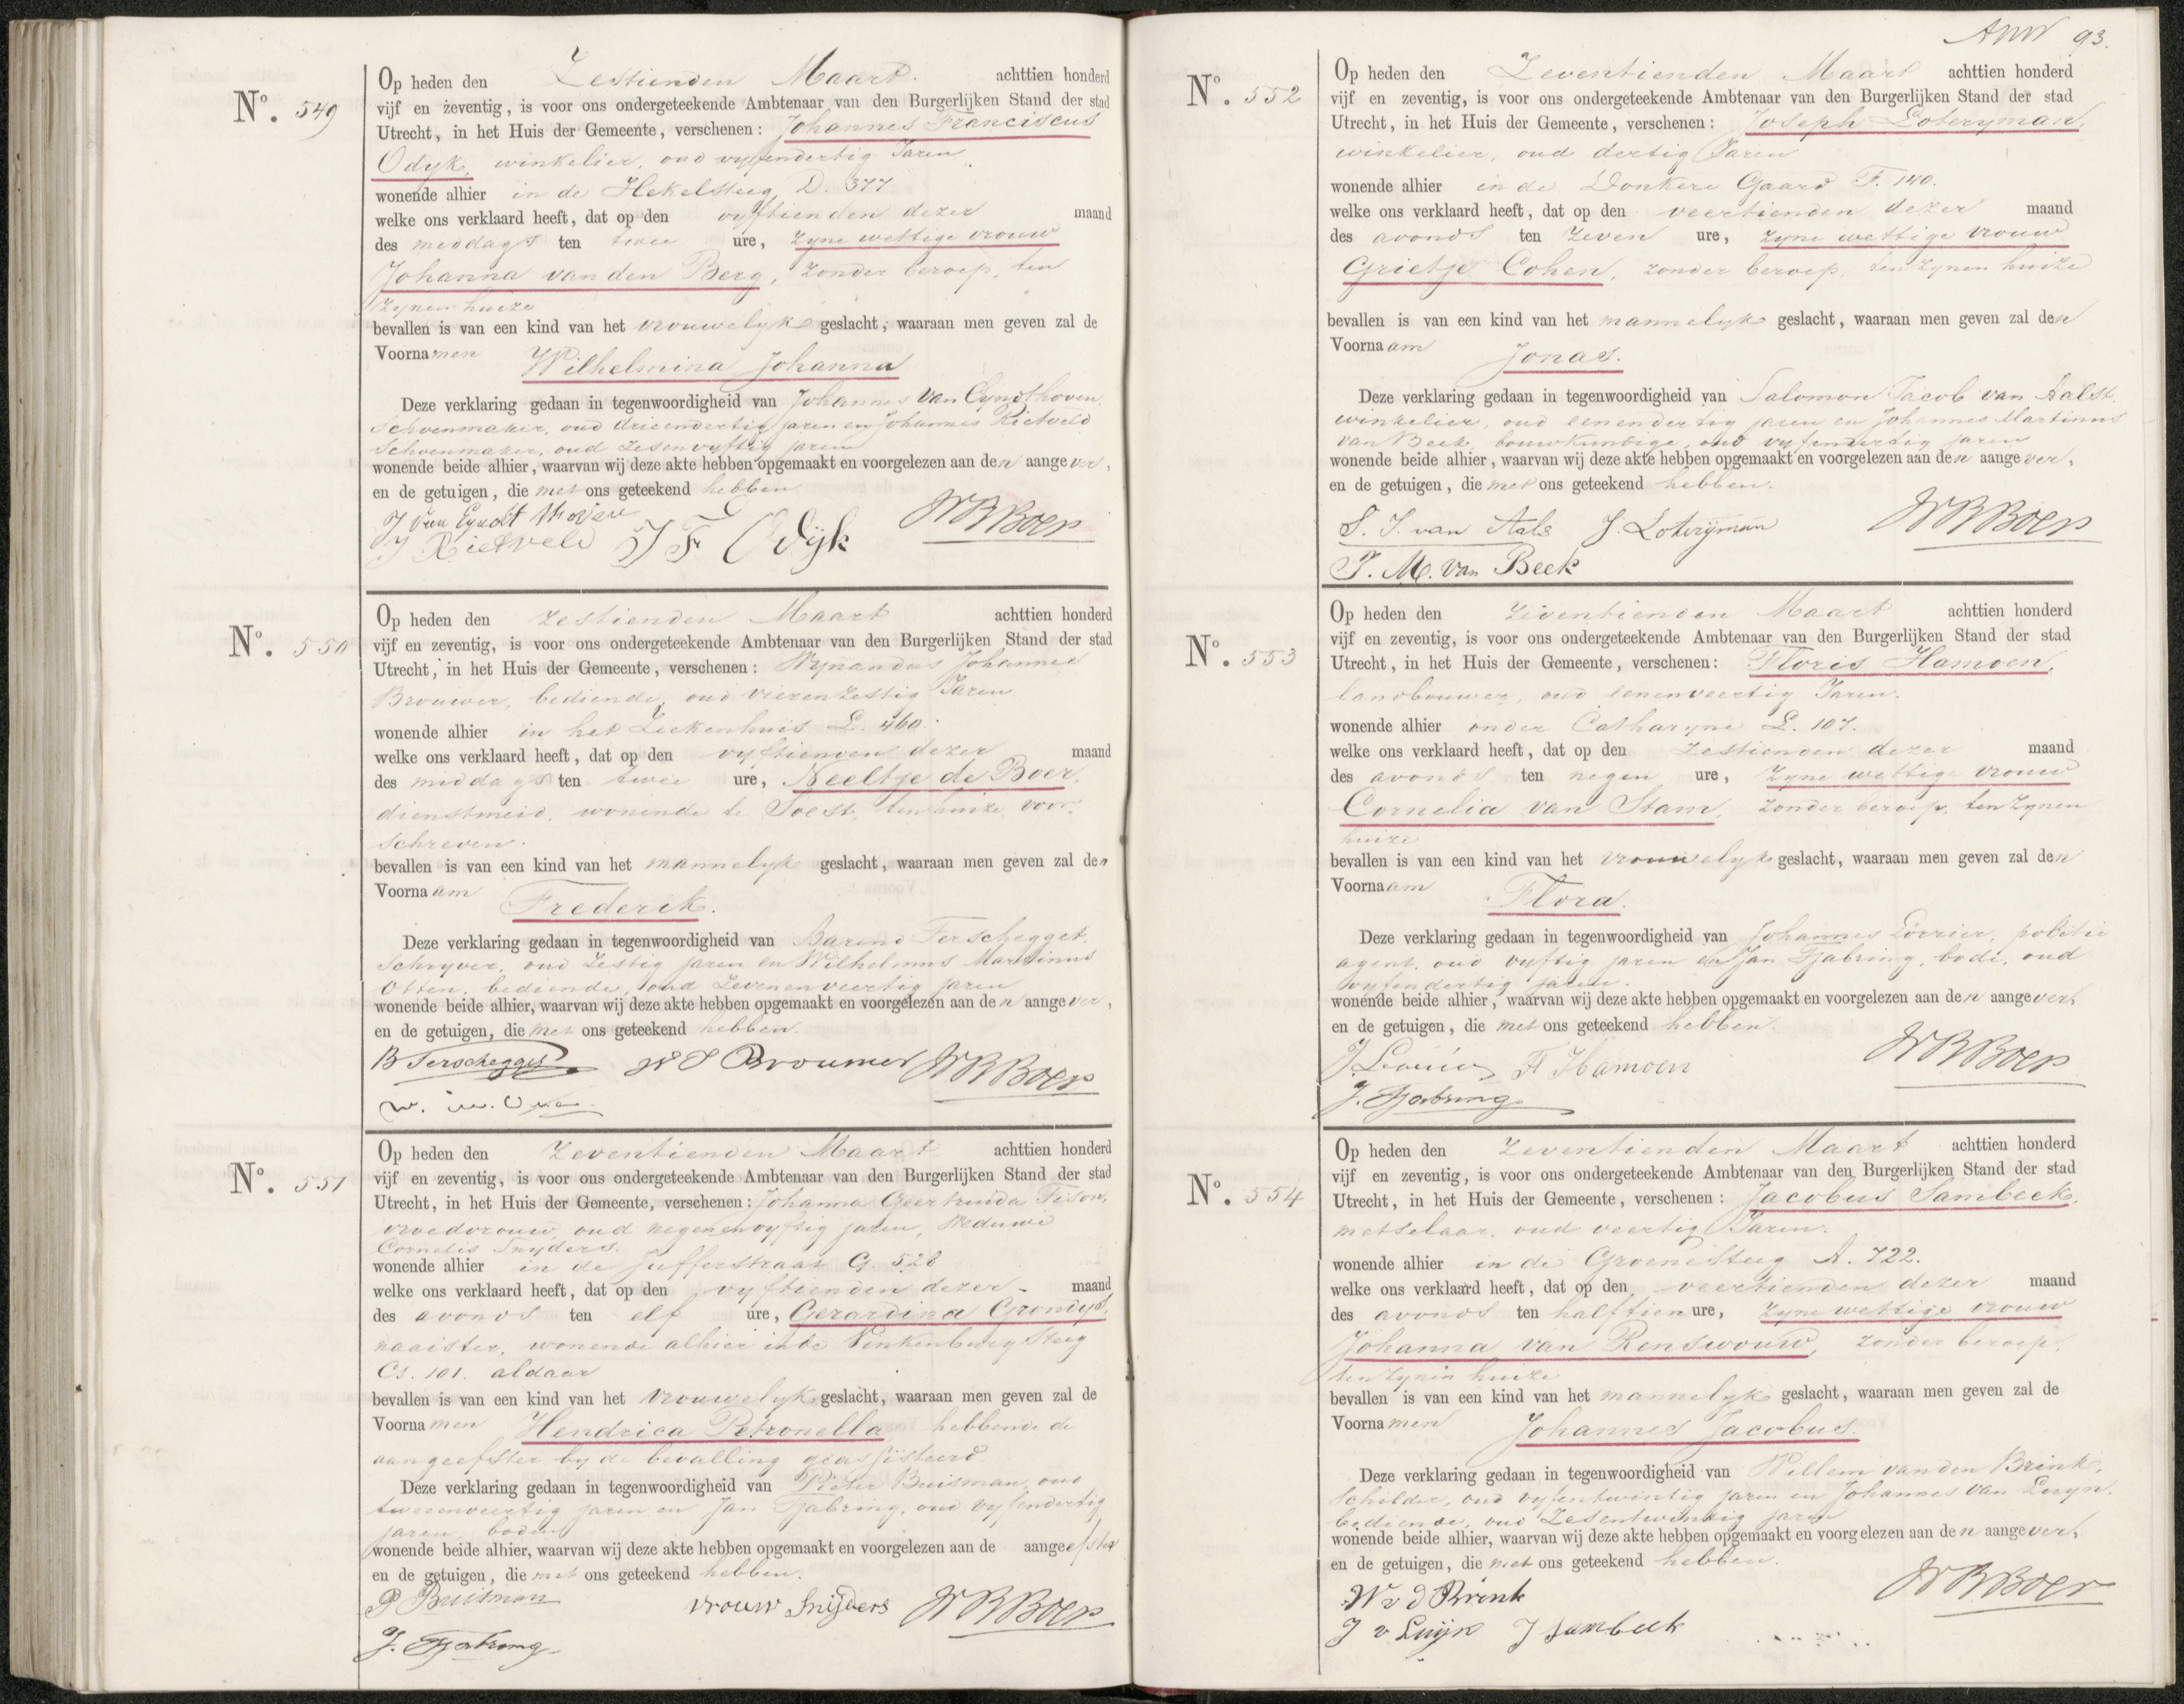 No. 549
Op heden den Zestienden Maart achttien honderd
vijf en zeventig, is voor ons ondergeteekende Ambtenaar van den Burgerlijken Stand der stad
Utrecht, in het Huis der Gemeente, verschenen: Johannes Franciscus
Odijk, winkelier, oud vijfendertig Jaren
wonende alhier in de Hekelsteeg D. 377
welke ons verklaard heeft, dat op den vijftienden dezer maand
des middags ten twee ure, zijne wettige vrouw
Johanna van den Berg, zonder beroep, ten
zijnen huize
bevallen is van een kind van het vrouwelijk geslacht, waaraan men geven zal de
Voornamen Wilhelmina Johanna
Deze verklaring gedaan in tegenwoordigheid van Johannes van Eyndthoven
schoenmaker, oud drieendertig jaren en Johannes Rietveld
schoenmaker, oud zesenvijftig jaren
wonende beide alhier, waarvan wij deze akte hebben opgemaakt en voorgelezen aan den aangever,
en de getuigen, die met ons geteekend hebben
J van Eyndthoven
J Rietveld J F Odijk WBBoer
No. 550
Op heden den zestienden Maart achttien honderd
vijf en zeventig, is voor ons ondergeteekende Ambtenaar van den Burgerlijken Stand der stad
Utrecht, in het Huis der Gemeente, verschenen: Wijnandus Johannes
Brouwer, bediende, oud vierenzestig Jaren
wonende alhier in het Ziekenhuis L. 460.
welke ons verklaard heeft, dat op den vijftienden dezer maand
des middags ten twee ure, Neeltje de Boer,
dienstmeid, wonende te Soest, ten huize voor-
schreven.
bevallen is van een kind van het mannelijk geslacht, waaraan men geven zal den
Voornaam Frederik.
Deze verklaring gedaan in tegenwoordigheid van Barend Terschegget
schrijver, oud zestig jaren en Wilhelmus Martinus
Otten, bediende, oud zevenenveertig jaren
wonende beide alhier, waarvan wij deze akte hebben opgemaakt en voorgelezen aan den aangever,
en de getuigen, die met ons geteekend hebben.
B Terschegget W J Brouwer WBBoer
No. 551
Op heden den Zeventienden Maart achttien honderd
vijf en zeventig, is voor ons ondergeteekende Ambtenaar van den Burgerlijken Stand der stad
Utrecht, in het Huis der Gemeente, verschenen: Johanna Geertruida Tison,
vroedvrouw, oud negenenvijftig jaren, Weduwe
Cornelis Snijders.
wonende alhier in de Jufferstraat G. 528
welke ons verklaard heeft, dat op den vijftienden dezer maand
des avonds ten elf ure, Gerardina Grondijs,
naaister, wonende alhier in de Vinkenburgsteeg
Cs. 101. aldaar
bevallen is van een kind van het vrouwelijk geslacht, waaraan men geven zal de
Voornamen Hendrica Petronella, hebbende de
aangeefster bij de bevalling geassisteerd
Deze verklaring gedaan in tegenwoordigheid van Pieter Buisman, oud
tweeenveertig jaren en Jan Tjabring, oud vijfendertig
jaren, boden
wonende beide alhier, waarvan wij deze akte hebben opgemaakt en voorgelezen aan de aangeefster
en de getuigen, die met ons geteekend hebben.
P Buisman vrouw Snijders WBBoer
J. Tjabring
ANW 93.
No. 552
Op heden den Zeventienden Maart achttien honderd
vijf en zeventig, is voor ons ondergeteekende Ambtenaar van den Burgerlijken Stand der stad
Utrecht, in het Huis der Gemeente, verschenen: Joseph Loterijman,
winkelier, oud dertig Jaren
wonende alhier in de Donkere Gaard F. 140.
welke ons verklaard heeft, dat op den veertienden dezer maand
des avonds ten zeven ure, zijne wettige vrouw
Grietje Cohen, zonder beroep, ten zijnen huize
bevallen is van een kind van het mannelijk geslacht, waaraan men geven zal den
Voornaam Jonas.
Deze verklaring gedaan in tegenwoordigheid van Salomon Jacob van Aalst
winkelier, oud eenendertig jaren en Johannes Martinus
van Beek, bouwkundige, oud vijfendertig jaren
wonende beide alhier, waarvan wij deze akte hebben opgemaakt en voorgelezen aan den aangever,
en de getuigen, die met ons geteekend hebben.
S. J. van Aals J. Loterijman WBBoer
J. M. van Beek
No. 553
Op heden den Zeventienden Maart achttien honderd
vijf en zeventig, is voor ons ondergeteekende Ambtenaar van den Burgerlijken Stand der stad
Utrecht, in het Huis der Gemeente, verschenen: Floris Hamoen,
landbouwer, oud eenenveertig Jaren.
wonende alhier onder Catharyne L. 107.
welke ons verklaard heeft, dat op den zestienden dezer maand
des avonds ten negen ure, zijne wettige vrouw
Cornelia van Stam, zonder beroep, ten zijnen
huize
bevallen is van een kind van het vrouwelijk geslacht, waaraan men geven zal den
Voornaam Flora.
Deze verklaring gedaan in tegenwoordigheid van Johannes politie
agent, oud vijftig jaren en Jan Tjabring, bode, oud
vijfendertig jaren.
wonende beide alhier, waarvan wij deze akte hebben opgemaakt en voorgelezen aan den aangever,
en de getuigen, die met ons geteekend hebben.
F Hamoen WBBoer
J. Tjabring
No. 554
Op heden den Zeventienden Maart achttien honderd
vijf en zeventig, is voor ons ondergeteekende Ambtenaar van den Burgerlijken Stand der stad
Utrecht, in het Huis der Gemeente, verschenen: Jacobus Sambeek,
metselaar, oud veertig Jaren.
wonende alhier in de Groenesteeg A. 722.
welke ons verklaard heeft, dat op den veertienden dezer maand
des avonds ten half tien ure, zijne wettige vrouw
Johanna van Renswouw, zonder beroep,
ten zijnen huize
bevallen is van een kind van het mannelijk geslacht, waaraan men geven zal de
Voornamen Johannes Jacobus.
Deze verklaring gedaan in tegenwoordigheid van Willem van den Brink,
schilder, oud vijfentwintig jaren en Johannes van Luyn,
bediende, oud zesentwintig jaren
wonende beide alhier, waarvan wij deze akte hebben opgemaakt en voorgelezen aan den aangever,
en de getuigen, die met ons geteekend hebben.
W v d Brink WBBoer
J v Luijn J Sambeek